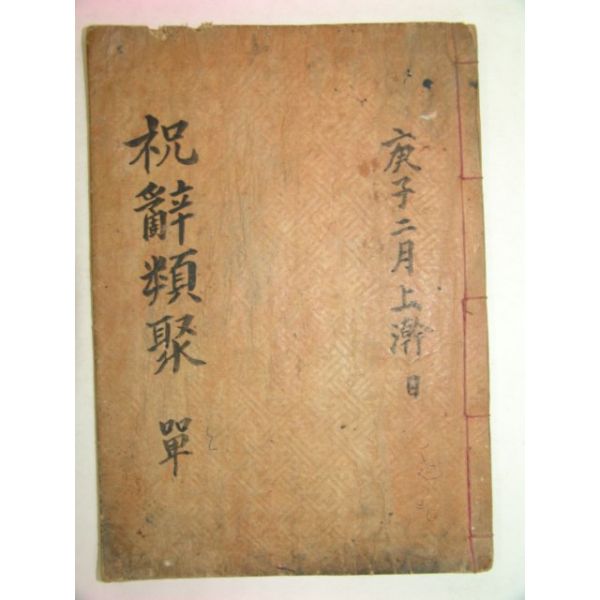 庚子二月上澣日
祝辭類聚 單